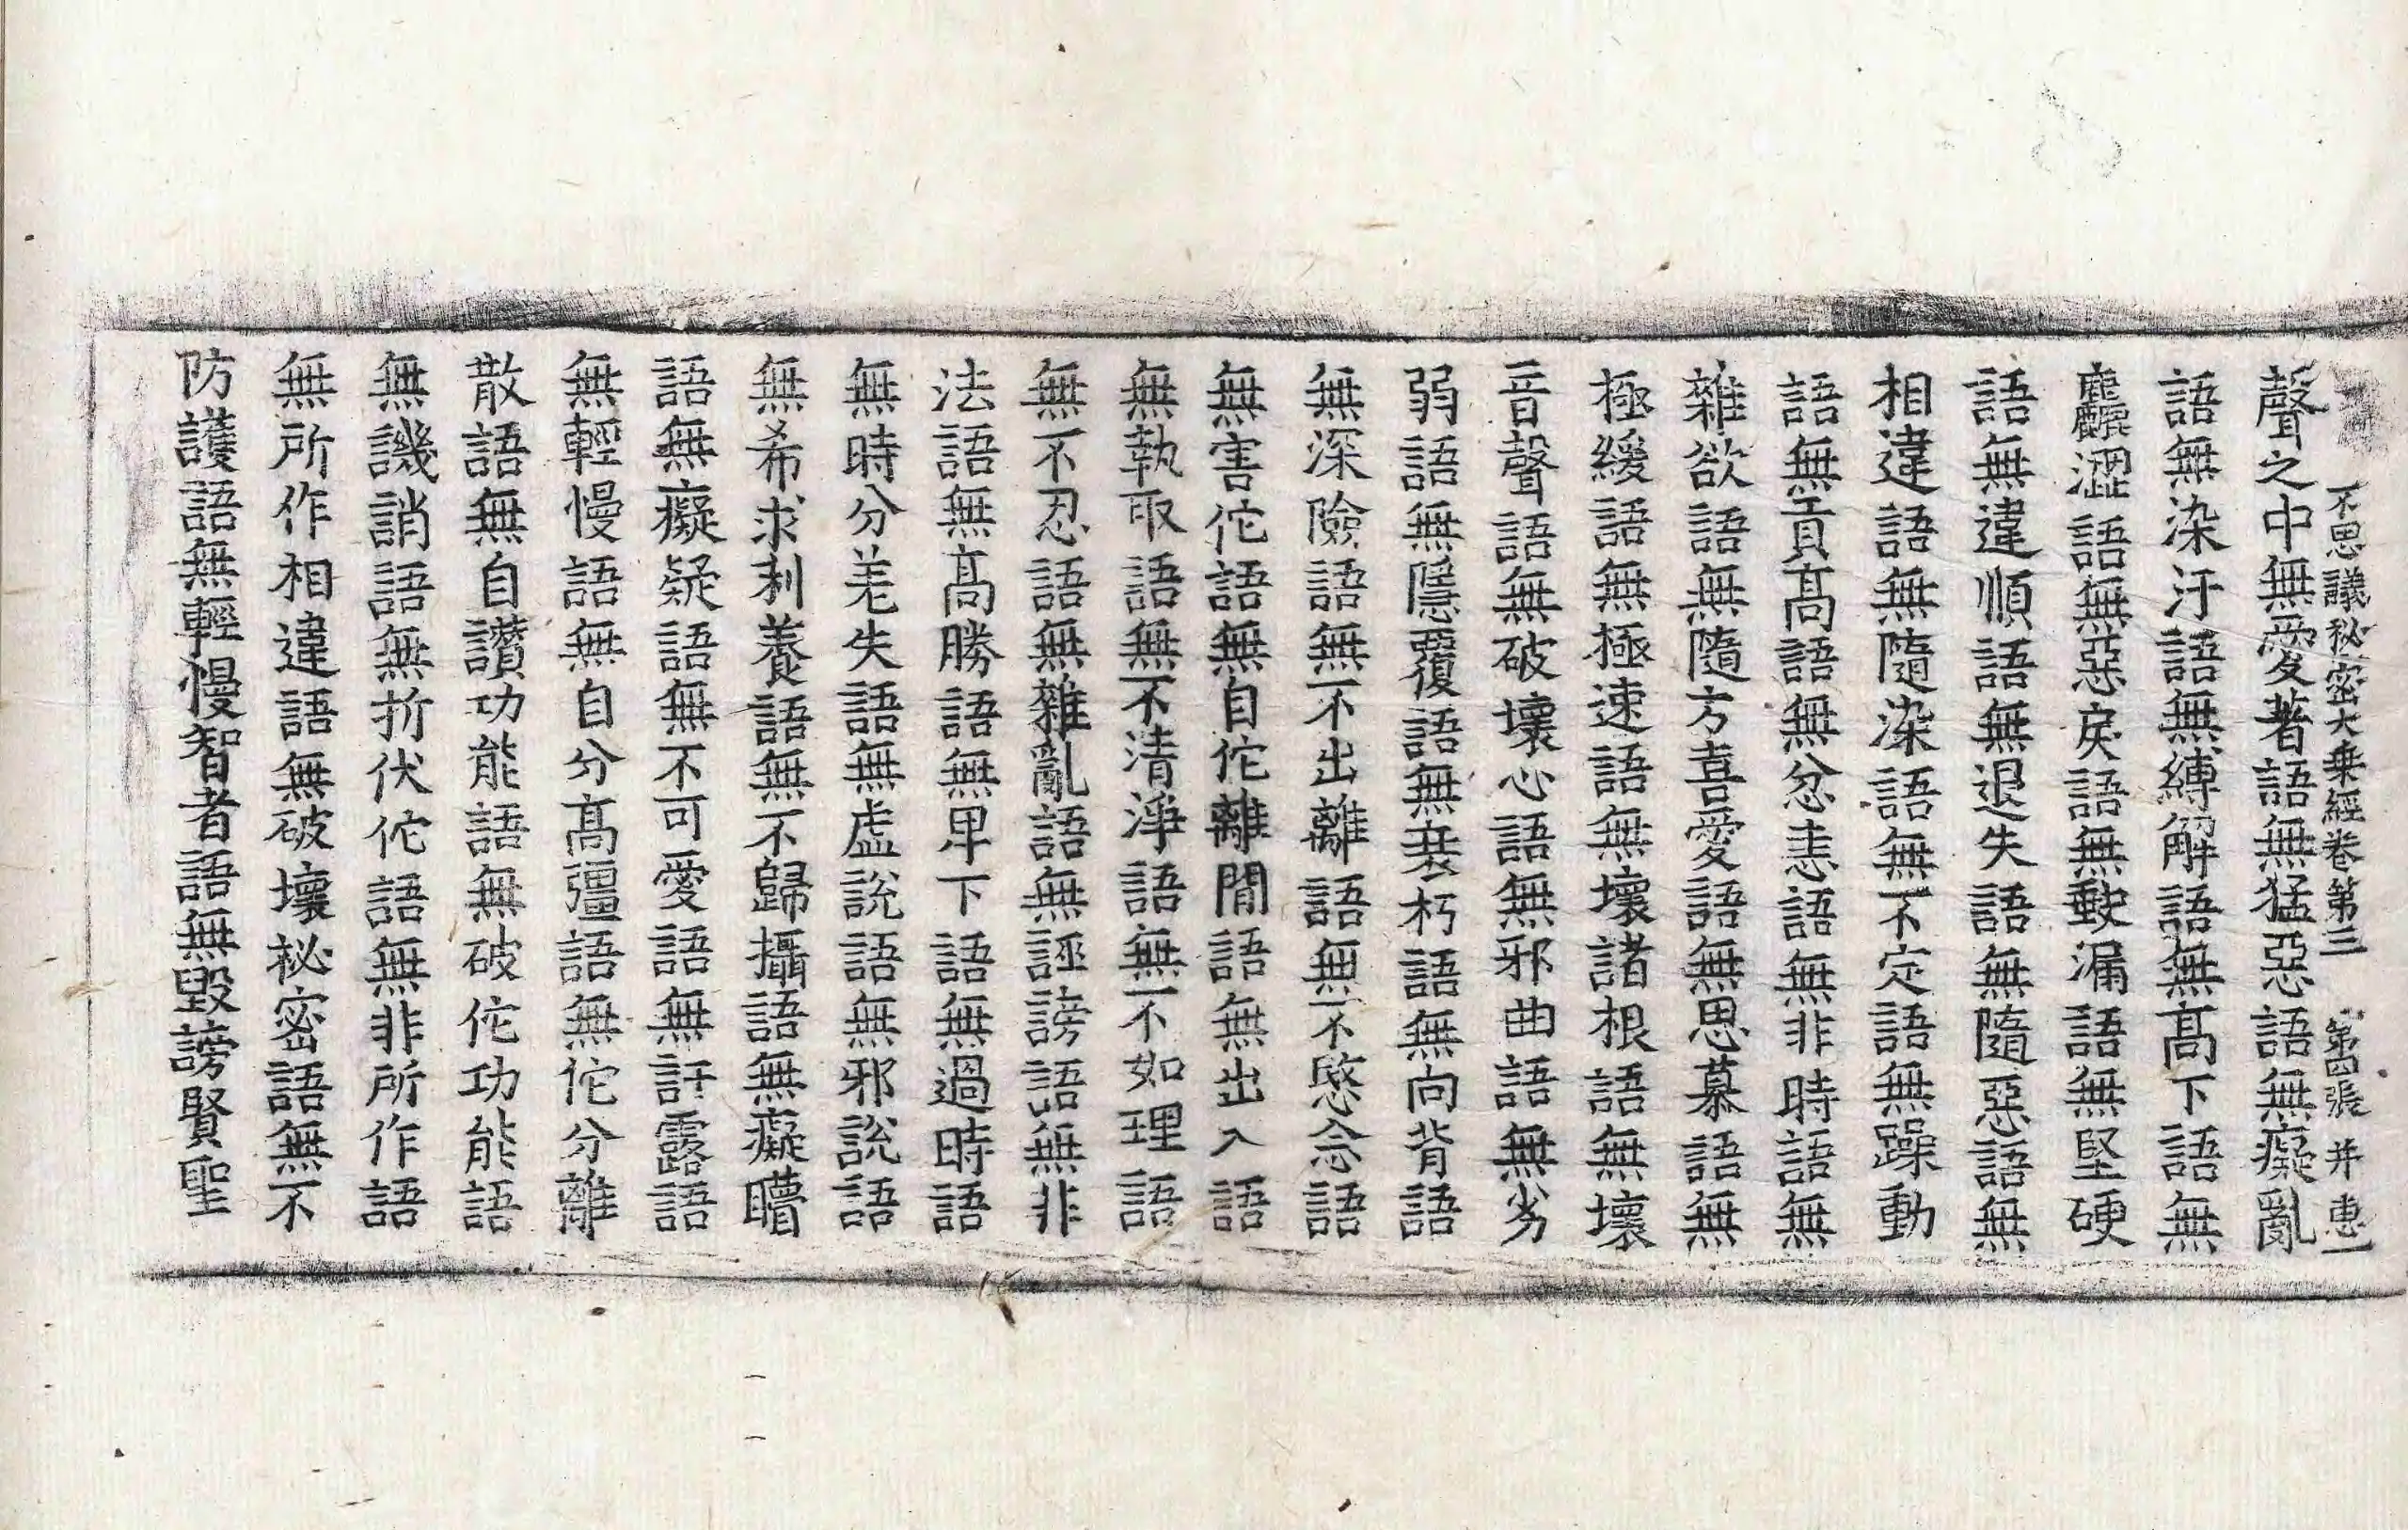 不思議秘密大乗經卷第三 第四張 并 惠一
聲之中無愛著語無猛惡語無癡亂
語無染汙語無縛解語無髙下語無
麤澀語無惡戾語無䮕漏語無堅硬
語無違順語無退失語無隨惡語無
相違語無隨染語無不定語無躁動
語無貢髙語無忿恚語無非時語無
雜欲語無隨方喜愛語無思慕語無
極緩語無極速語無壞諸根語無壞
音聲語無破壞心語無邪曲語無劣
弱語無隱覆語無衰朽語無向背語
無深險語無不出離語無不愍念語
無害佗語無自佗離間語無出入語
無執取語無不清淨語無不如理語
無不忍語無雜亂語無誣謗語無非
法語無髙勝語無卑下語無過時語
無時分差失語無虛說語無邪說語
無希求利養語無不歸攝語無癡瞶
語無癡疑語無不可愛語無訐露語
無輕慢語無自分髙彊語無佗分離
散語無自讚功能語無破佗功能語
無譏誚語無折伏佗語無非所作語
無所作相違語無破壞秘密語無不
防護語無輕慢智者語無毀謗賢聖